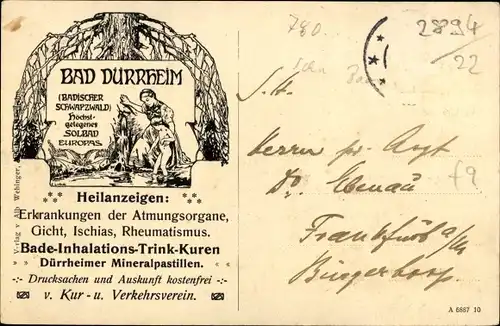 BAD DÜRRHEIM
(BADISCHER
SCHWARZWALD)
Höchst-
gelegenes
SOLBAD
EUROPAS.
Heilanzeigen:
Erkrankungen der Atmungsorgane,
Gicht, Ischias, Rheumatismus.
Bade-Inhalations-Trink-Kuren
Dürrheimer Mineralpastillen.
-:- Drucksachen und Auskunft kostenfrei -:-
v. Kur- u. Verkehrsverein.
Verlag v. Alb. Wehinger,
780
28294/22
S. H.
Herrn pr. Arzt
Dr.
Frankfurt a/M
f9
A 6887 10